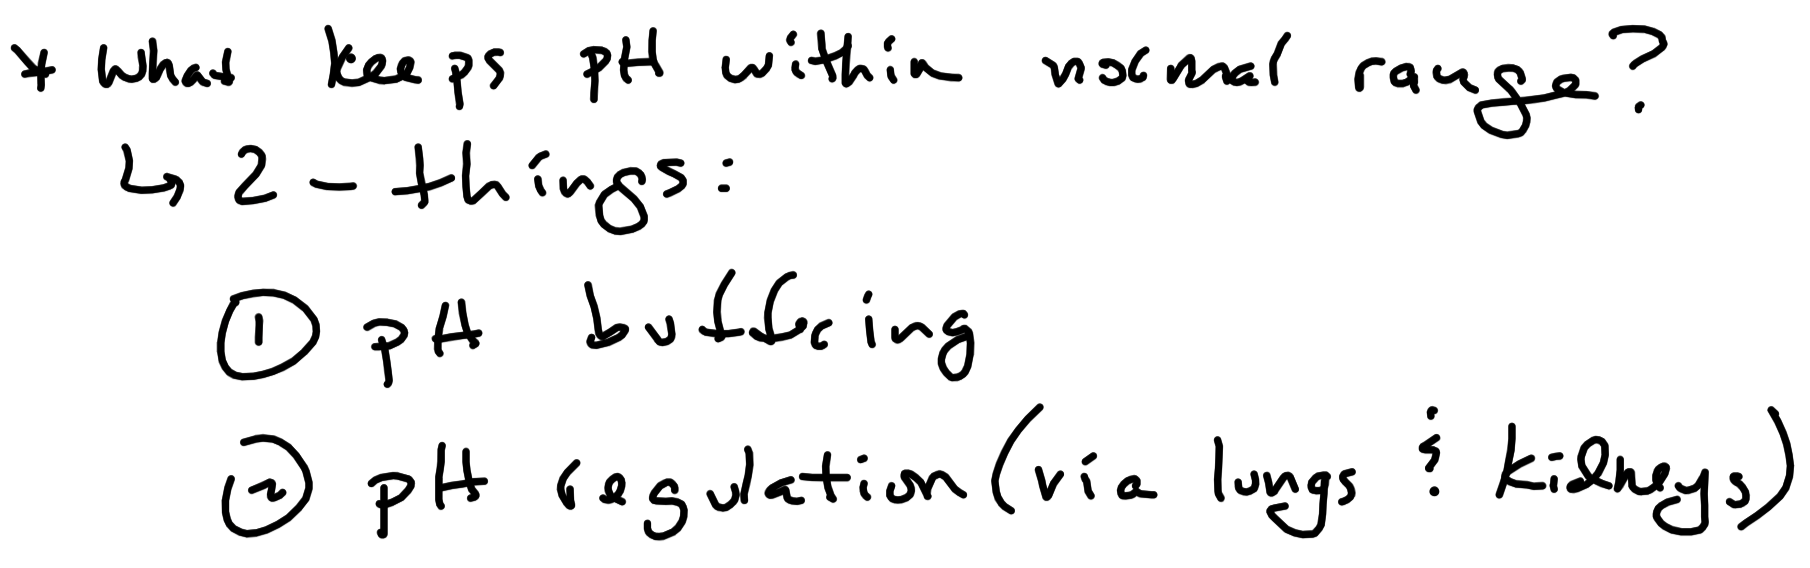 * What keeps pH within normal range?
↳ 2 - things:
① pH buffering
② pH regulation (via lungs & kidneys)